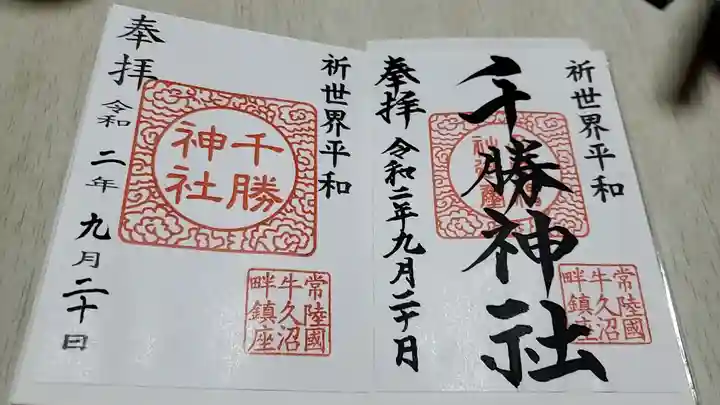 祈世界平和
千勝神社
奉拝
令和二年九月二十日
常陸國
牛久沼
畔鎮座
祈世界平和
千勝神社
奉拝 令和二年九月二十日
常陸國
牛久沼
畔鎮座